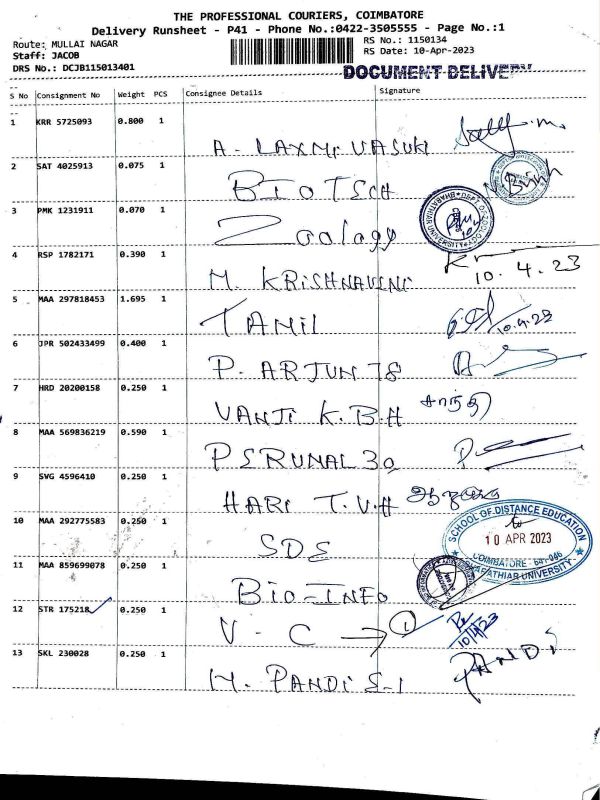 THE PROFESSIONAL COURIERS, COIMBATORE
Delivery Runsheet - P41 - Phone No.:0422-3505555 - Page No.:1
Route: MULLAI NAGAR
RS No.: 1150134
Staff: JACOB
RS Date: 10-Apr-2023
DRS No.: DCJB115013401
DOCUMENT DELIVERY
S No Consignment No Weight PCS Consignee Details Signature
1 KRR 5725093 0.800 1
A. LAXMI VASUKI
2 SAT 4025913 0.075 1
BIOTECH
3 PMK 1231911 0.070 1
Zoology
4 RSP 1782171 0.390 1
M. KRISHNAVENI 10.4.23
5 MAA 297818453 1.695 1
TAMIL 10.4.23
6 JPR 502433499 0.400 1
P. ARJUN 78
7 HRD 20200158 0.250 1
VANJI K.B.H சாந்தி
8 MAA 569836219 0.590 1
PERUMAL 30
9 SVG 4596410 0.250 1
HARI T.V.H
10 MAA 292775583 0.250 1
SDE
SCHOOL OF DISTANCE EDUCATION
10 APR 2023
COIMBATORE - 641 046
BHARATHIAR UNIVERSITY
11 MAA 859699078 0.250 1
BIO-INFO
12 STR 175218 0.250 1
V - C → 1 10/4/23
13 SKL 230028 0.250 1
M. PANDI E-1 PANDI